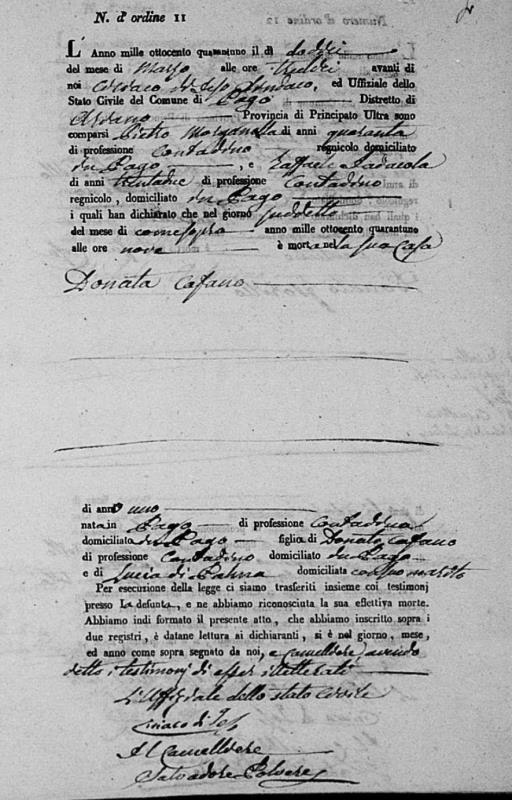 N. d'ordine 11
L'Anno mille ottocento quarantuno il dì dodici
del mese di Marzo alle ore tredici avanti di
noi Ciriaco di Ioso Sindaco, ed Uffiziale dello
Stato Civile del Comune di Pago Distretto di
Provincia di Principato Ultra sono
comparsi Pietro Morganella di anni quaranta
di professione Contadino regnicolo domiciliato
in Pago, e Raffaele
di anni trentadue di professione Contadino
regnicolo, domiciliato in Pago
i quali han dichiarato che nel giorno suddetto
del mese di come sopra anno mille ottocento quarantuno
alle ore nove è morta nella sua casa
Donata Cafano
di anni uno
nata in Pago di professione Contadina
domiciliato in Pago figlia di Donato Cafano
di professione Contadino domiciliato in Pago
e di Lucia di Palma domiciliata col suo marito
Per esecuzione della legge ci siamo trasferiti insieme coi testimonj
presso la defunta, e ne abbiamo riconosciuta la sua effettiva morte.
Abbiamo indi formato il presente atto, che abbiamo inscritto sopra i
due registri, è datane lettura ai dichiaranti, si è nel giorno, mese,
ed anno come sopra segnato da noi, e Cancelliere avendo
detto i testimonj di esser illetterati
L'Uffiziale dello stato Civile
Ciriaco di Ioso
Il Cancelliere
Salvadore